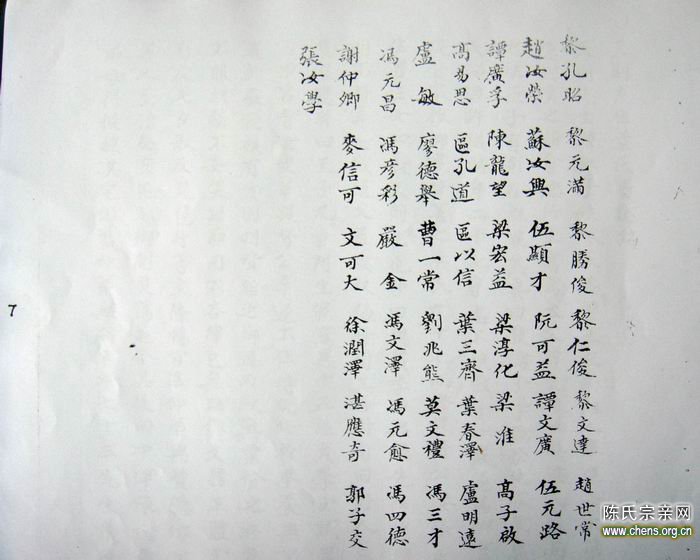 黎孔昭 黎元滿 黎勝俊 黎仁俊 黎文達 趙世常
趙汝榮 蘇汝興 伍顯才 阮可益 譚文廣 伍元路
譚廣孚 陳龍望 梁宏益 梁淳化 梁淮 高子啟
高易思 區孔道 區以信 葉三齊 葉春澤 盧明遠
盧敏 廖德舉 曹一常 劉兆熊 莫文禮 馮三才
馮元昌 馮彥彩 嚴金 馮文澤 馮元愈 馮四德
謝仲卿 麥信可 文可大 徐潤澤 湛應奇 郭子交
張汝學
7
陈氏宗亲网
www.chens.org.cn